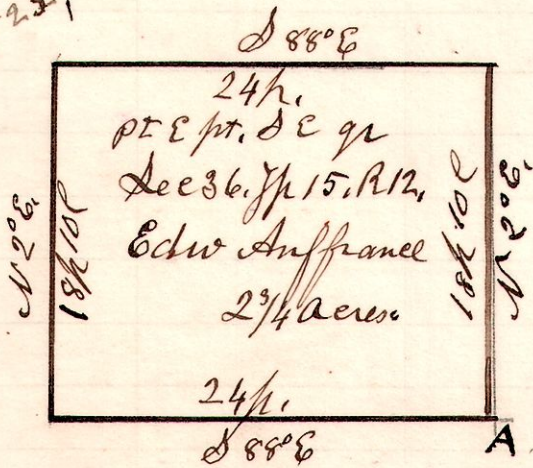 S 88°E
24p.
pt E pt. S E qr
Sec 36. Tp 15. R 12.
Edw Auffrance
2 3/4 acres.
N 2°E.
18p 10l
18p 10l
N 2°E.
24p.
S 88°E
A